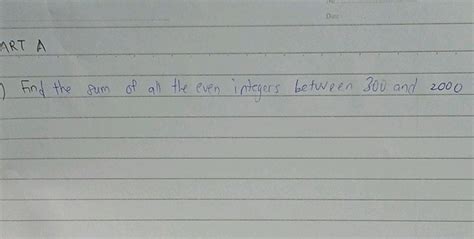 Date:
ART A
) Find the sum of all the even integers between 300 and 2000